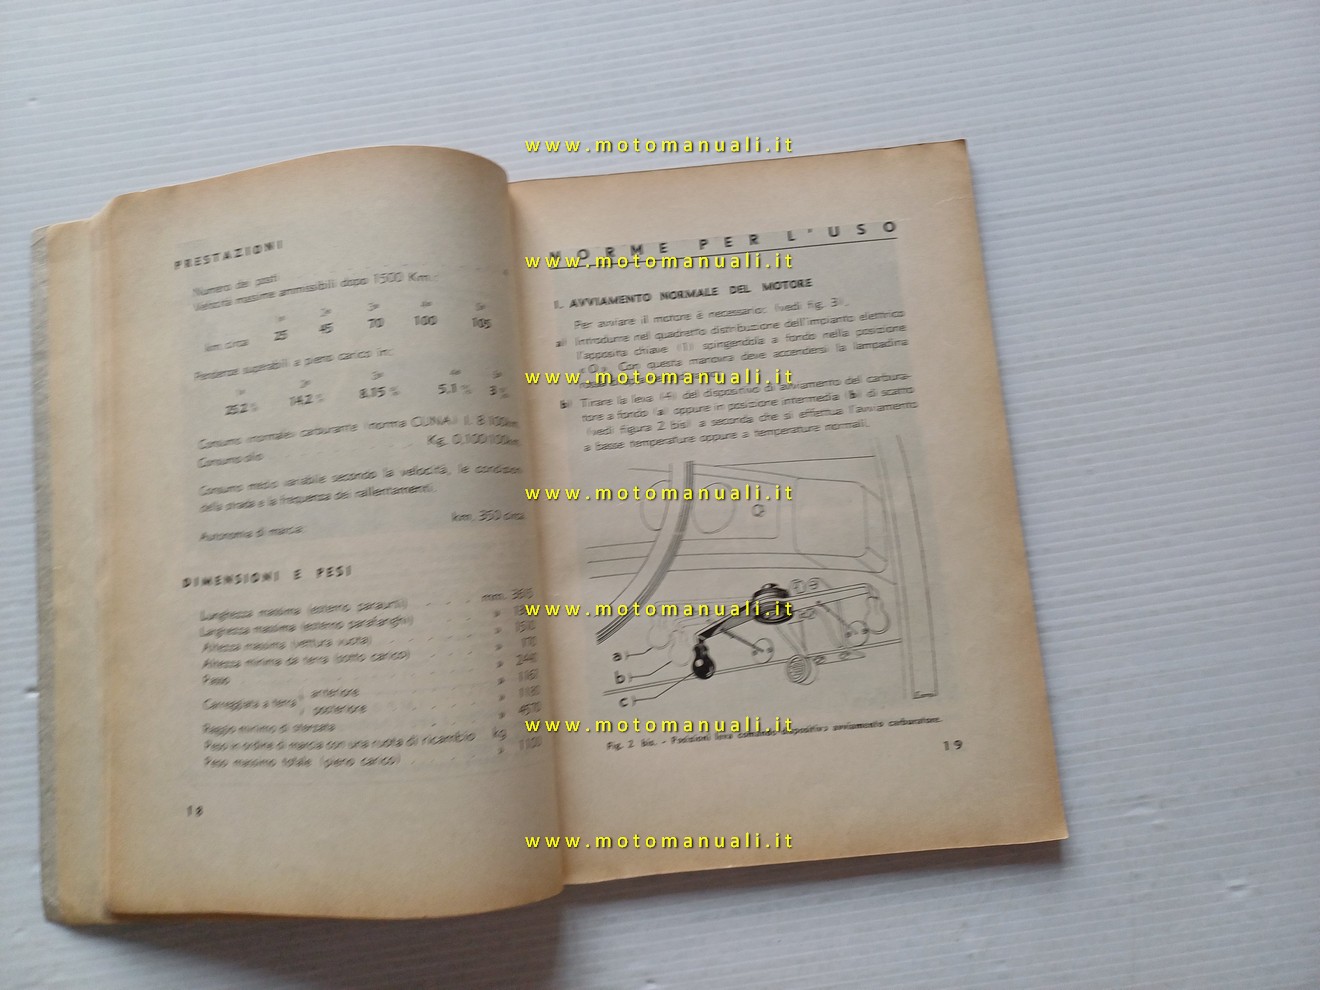 PRESTAZIONI
Numero dei posti 4
Velocità massime ammissibili dopo 1500 Km.:
1a 2a 3a 4a 5a
km circa 25 45 70 100 105
Pendenze superabili a pieno carico in:
1a 2a 3a 4a 5a
25.2 % 14.2 % 8.15 % 5.1 % 3 %
Consumo (normale) carburante (norma CUNA) l. 8/100km.
Consumo olio Kg. 0,100/100km.
Consumo medio variabile secondo la velocità, le condizioni
della strada e la frequenza dei rallentamenti.
Autonomia di marcia: km. 350 circa
DIMENSIONI E PESI
Lunghezza massima (esterno paraurti) . . . mm.
Larghezza massima (esterno parafanghi) . . . »
Altezza massima (vettura vuota) . . . »
Altezza minima da terra (sotto carico) . . . »
Passo . . . »
Carreggiata a terra anteriore . . . »
posteriore . . . »
Raggio minimo di sterzata
Peso in ordine di marcia con una ruota di ricambio kg
Peso massimo totale (pieno carico) . . . » 1100
18
NORME PER L'USO
1. AVVIAMENTO NORMALE DEL MOTORE
Per avviare il motore è necessario: (vedi fig. 3).
a) Introdurre nel quadretto distribuzione dell'impianto elettrico
l'apposita chiave (1) spingendola a fondo nella posizione
« O ». Con questa manovra deve accendersi la lampadina
b) Tirare la leva (4) del dispositivo di avviamento del carbura-
tore a fondo (a) oppure in posizione intermedia (b) di scatto
(vedi figura 2 bis) a seconda che si effettua l'avviamento
a basse temperature oppure a temperature normali.
a
b
c
Fig. 2 bis. - Posizioni leva comando dispositivo avviamento carburatore.
19
www.motomanuali.it
www.motomanuali.it
www.motomanuali.it
www.motomanuali.it
www.motomanuali.it
www.motomanuali.it
www.motomanuali.it